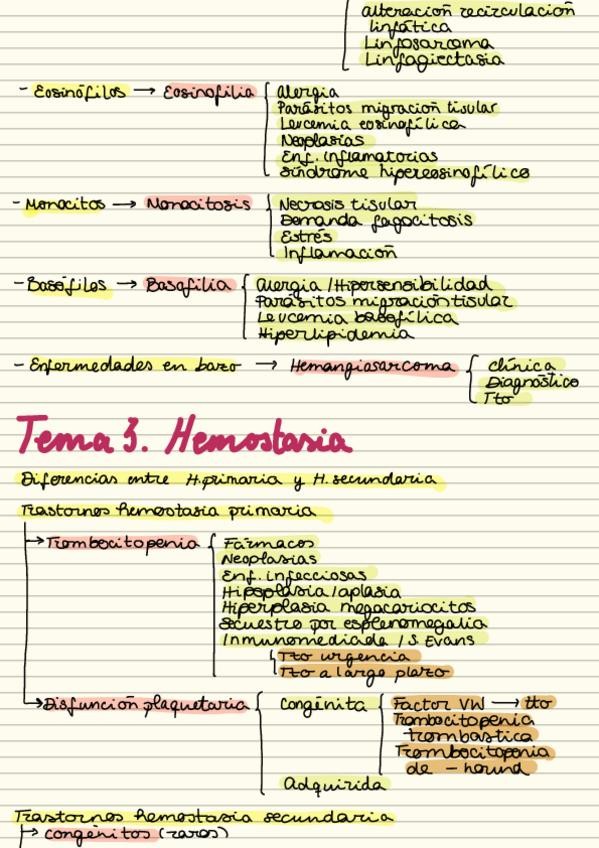 alteración recirculación
linfática
Linfosarcoma
Linfagiectasia
- Eosinófilos → Eosinofilia
Alergia
Parásitos migración tisular
Leucemia eosinofílica
Neoplasias
Enf. inflamatorias
Síndrome hipereosinofílico
- Monocitos → Monocitosis
Necrosis tisular
Demanda fagocitosis
Estrés
Inflamación
- Basófilos → Basofilia
Alergia / Hipersensibilidad
Parásitos migración tisular
Leucemia basofílica
Hiperlipidemia
- Enfermedades en bazo → Hemangiosarcoma
clínica
Diagnóstico
Tto
Tema 3. Hemostasia
Diferencias entre H.primaria y H. secundaria
Trastornos hemostasia primaria
→ Trombocitopenia
Fármacos
Neoplasias
Enf. infecciosas
Hipoplasia / aplasia
Hiperplasia megacariocitos
Secuestro por esplenomegalia
Inmunomediada / S. Evans
Tto urgencia
Tto a largo plazo
→ Disfunción plaquetaria
congénita
Factor VW → tto
Trombocitopenia
trombastica
Trombocitopenia
de - hound
Adquirida
Trastornos hemostasia secundaria
→ congénitos (raros)